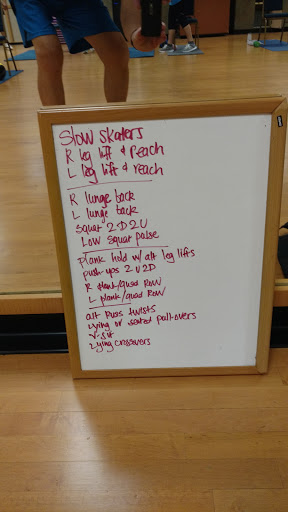 Slow Skaters
R leg lift & Reach
L leg lift & reach
R lunge back
L lunge back
Squat 2D2U
Low Squat pulse
plank hold w/ alt leg lifts
push-ups 2U2D
R plank/quad ROW
L plank/quad ROW
alt Russ twists
Lying or seated pullovers
V-sit
Lying crossovers